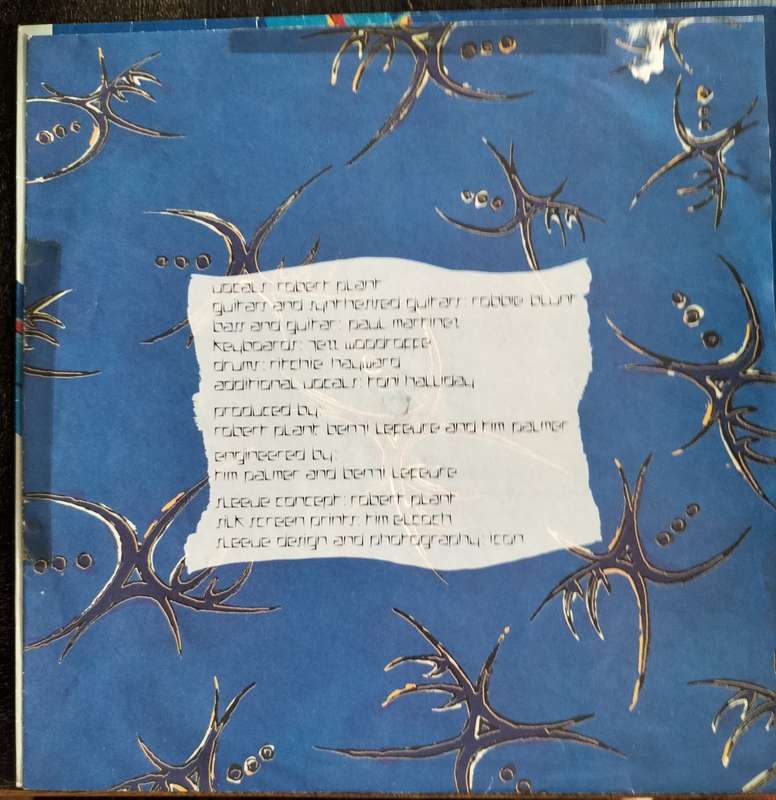 vocals: robert plant
guitars and synthesised guitars: robbie blunt
bass and guitar: paul martinez
keyboards: jezz woodroffe
drums: ritchie hayward
additional vocals: toni halliday
produced by:
robert plant benji lefevre and tim palmer
engineered by:
tim palmer and benji lefevre
sleeve concept: robert plant
silk screen prints: tim
sleeve design and photography: icon